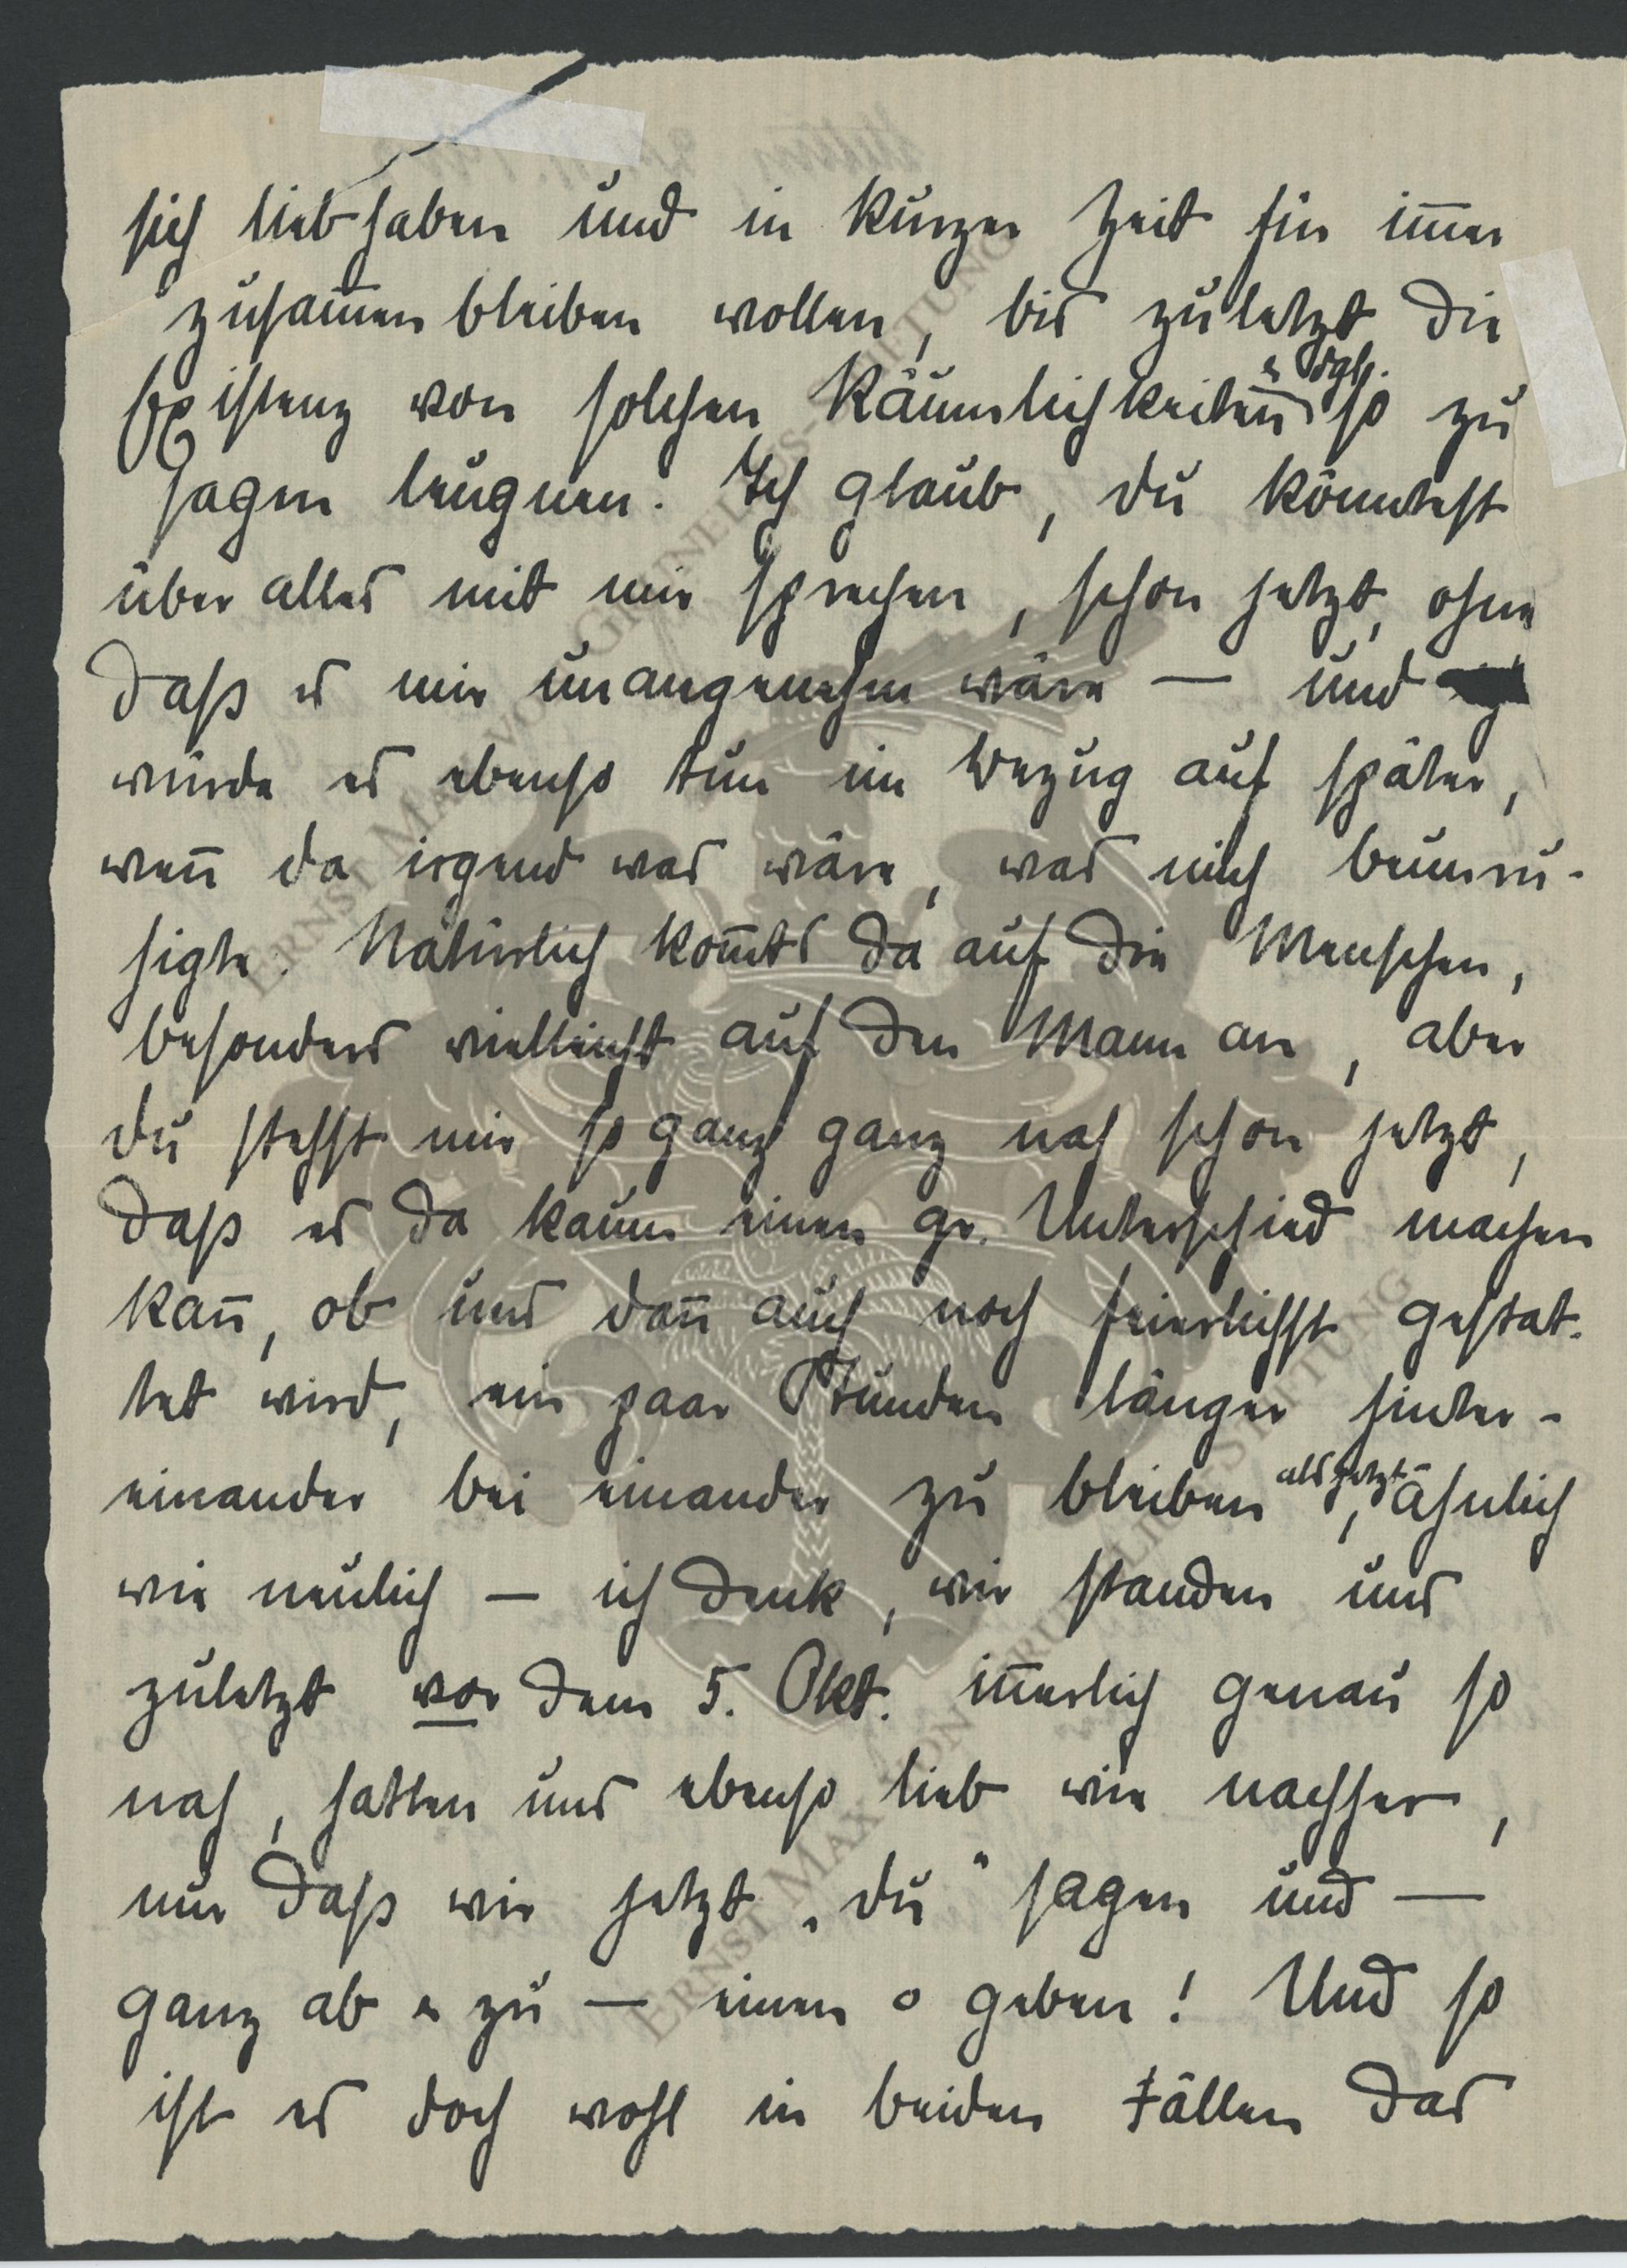 sich liebhaben und in kurzer Zeit für im̅er
zusam̅enbleiben wollen, bis zuletzt die
Existenz von solchen Räumlichkeiten̅ u dgl. so zu
sagen leugnen. Ich glaub, du könntest
über alles mit mir sprechen, schon jetzt, ohne
daß es mir unangenehm wäre — und
würde es ebenso tun im Bezug auf später,
wen̅ da irgend was wäre, was mich beunru-
higte. Natürlich kom̅ts da auf die Menschen,
besonders vielleicht auf den Mann an, aber
du stehst mir so ganz ganz nah schon jetzt,
daß es da kaum einen gr. Unterschied machen
kan̅, ob uns dan̅ auch noch feierlichst gestat-
tet wird, ein paar Stunden länger hinter-
einander bei einander zu bleiben als jetzt, ähnlich
wie neulich — ich denk, wir standen uns
zuletzt vor dem 5. Okt. in̅erlich genau so
nah, hatten uns ebenso lieb wie nachher,
nur daß wir jetzt „du“ sagen und —
ganz ab u zu — einen o geben! Und so
ist es doch wohl in beiden Fällen das
ERNST MAX VON GRUNELIUS-STIFTUNG
ERNST MAX VON GRUNELIUS-STIFTUNG